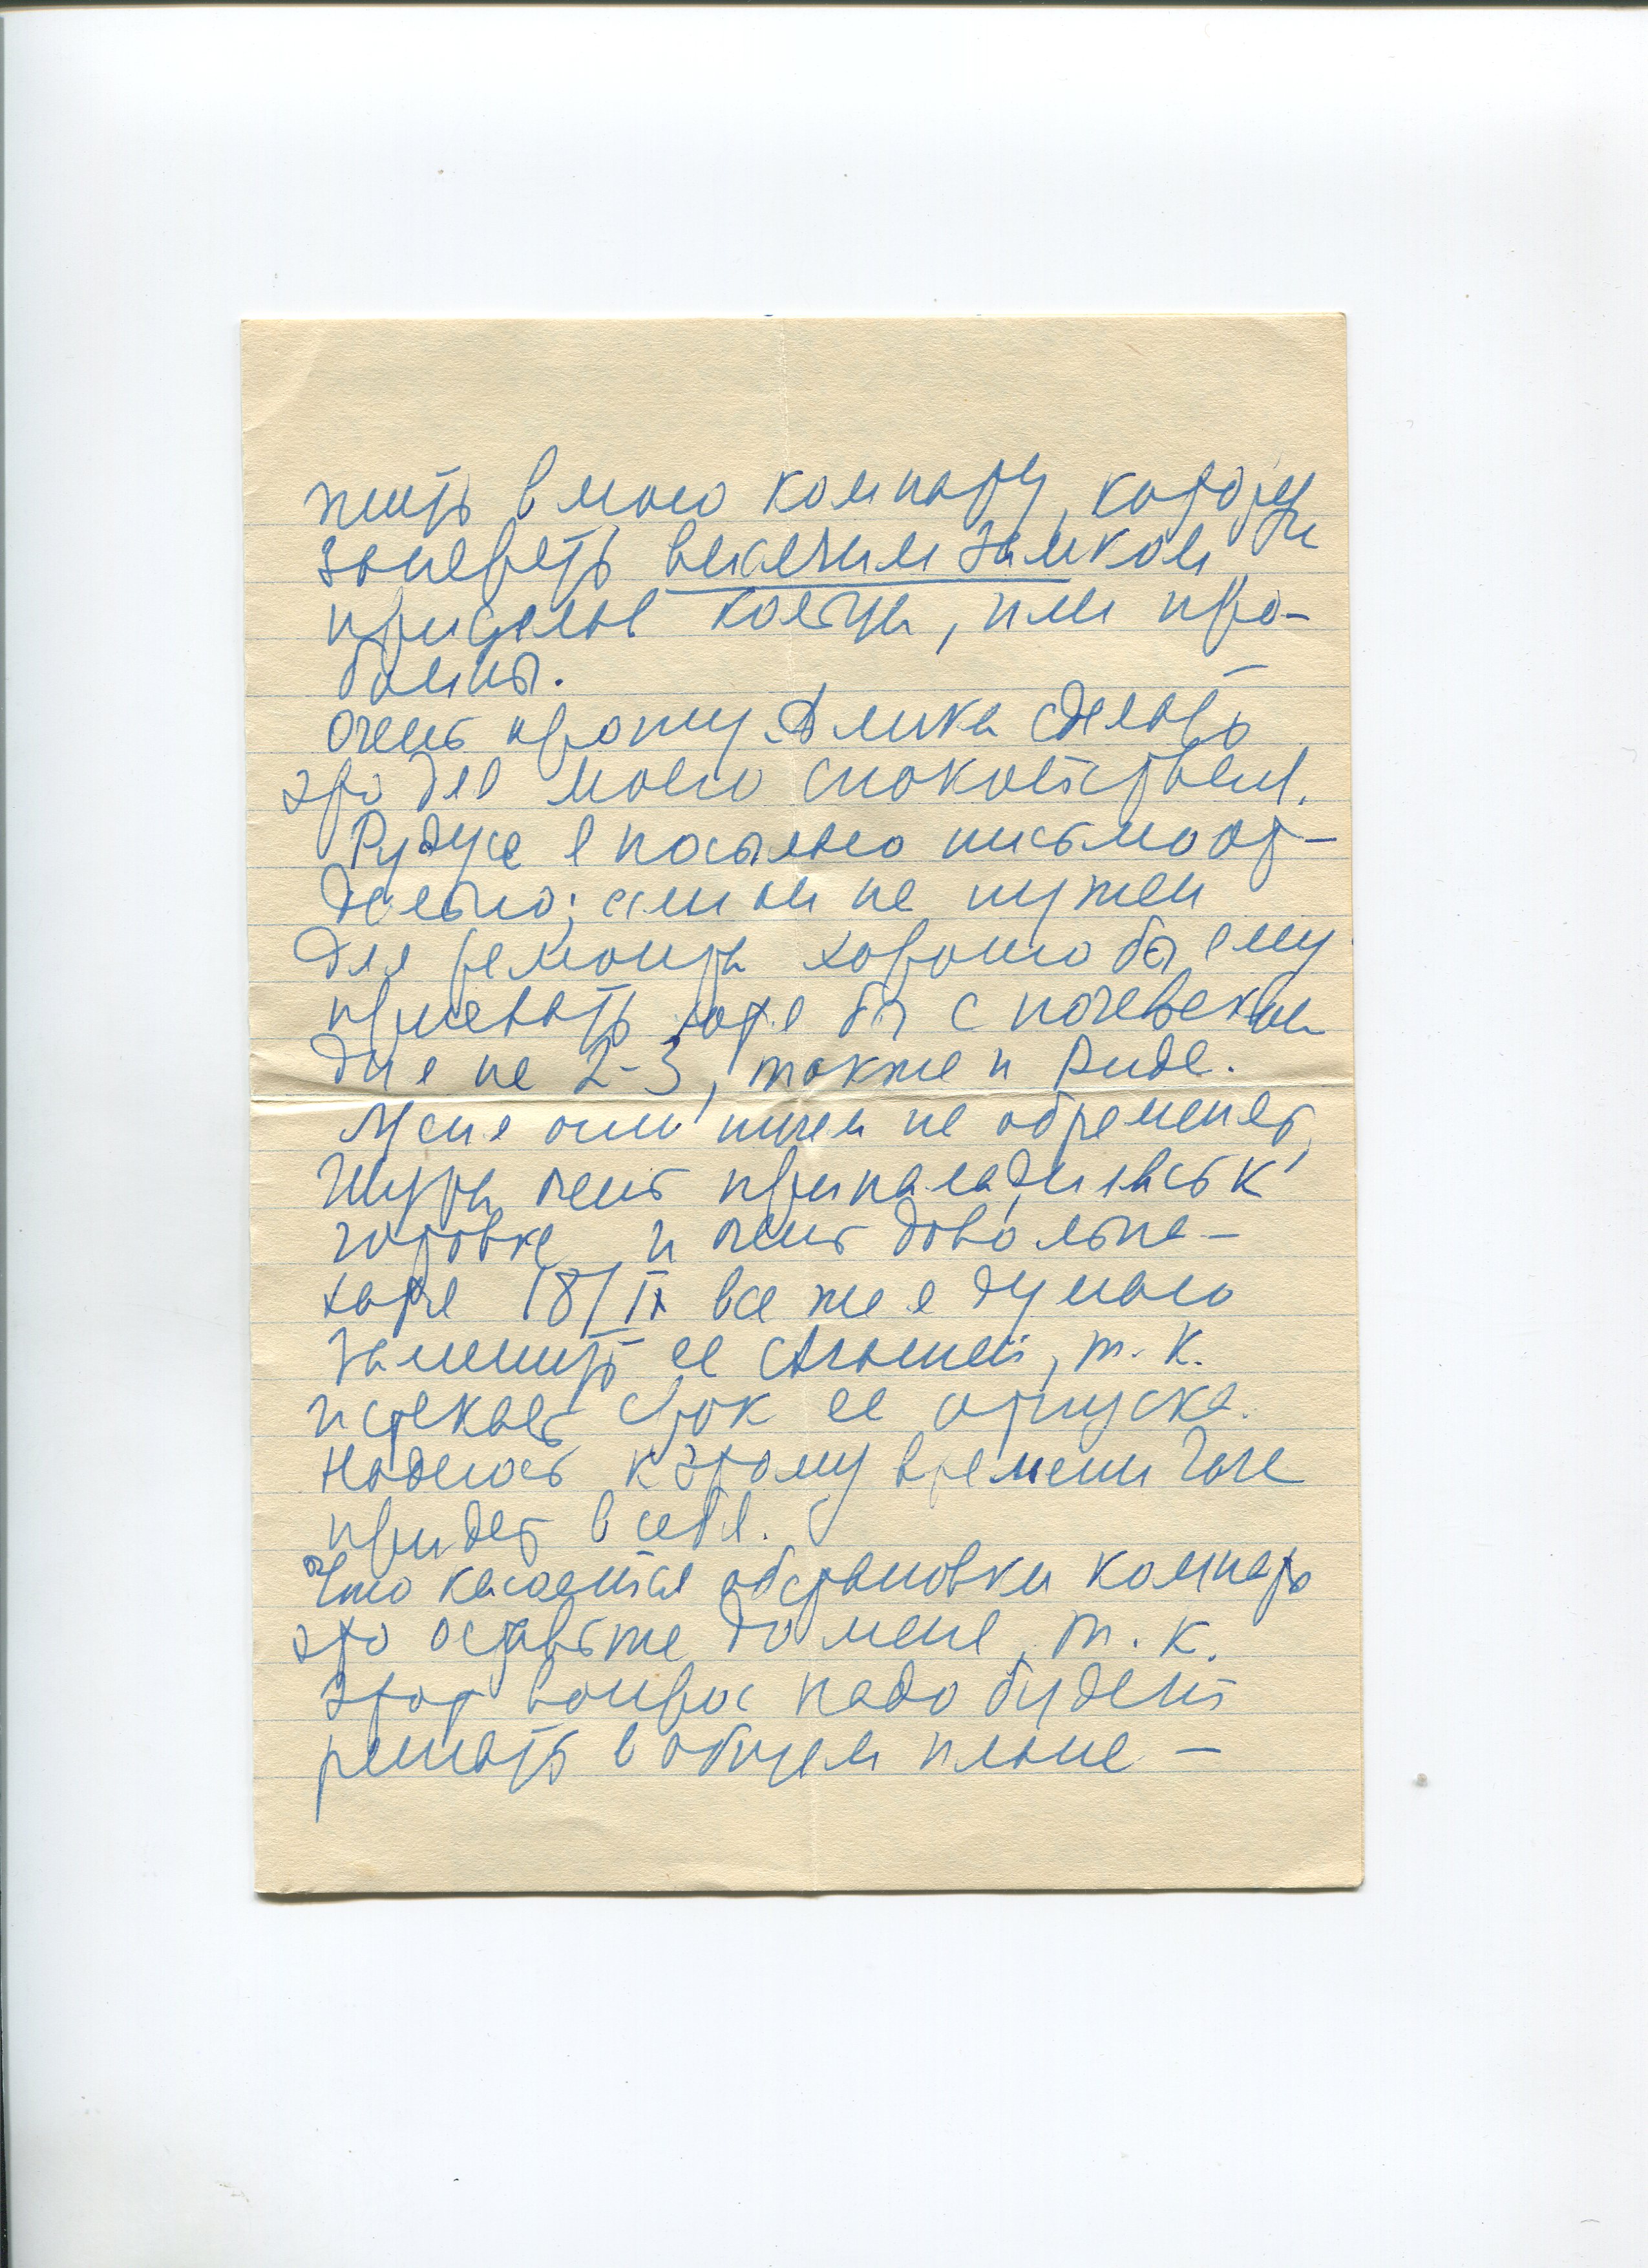 жить в мою комнату, которую
запереть висячим замком
приделав кольца, или про-
боины.
Очень прошу Алика сделать
это для моего спокойствия.
Рудусе я посылаю письмо от-
дельно; если он не нужен
для ремонта хорошо бы ему
приехать хотя бы с ночевкой
дня на 2-3, также и Аиде.
Меня они ничем не обременят,
Шура очень приналадилась к
готовке и очень довольна -
хотя 18/IX все же я думаю
заменить ее Агашей, т. к.
истекает срок ее отпуска.
Надеюсь к этому времени Гога
придет в себя.
Что касается обстановки комнаты
это оставьте до меня, т. к.
этот вопрос надо будет
решать в общем плане -